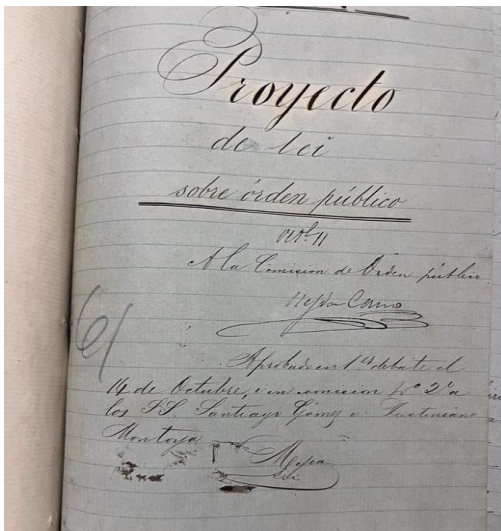 Proyecto
de lei
sobre órden público
Obe. 11
A la Comision de Orden público
Aprobado en 1er debate el
14 de Octubre, i en comision pa 2º a
los SS. Santiago Gómez i Justiniano
Montoya
Mejia
61